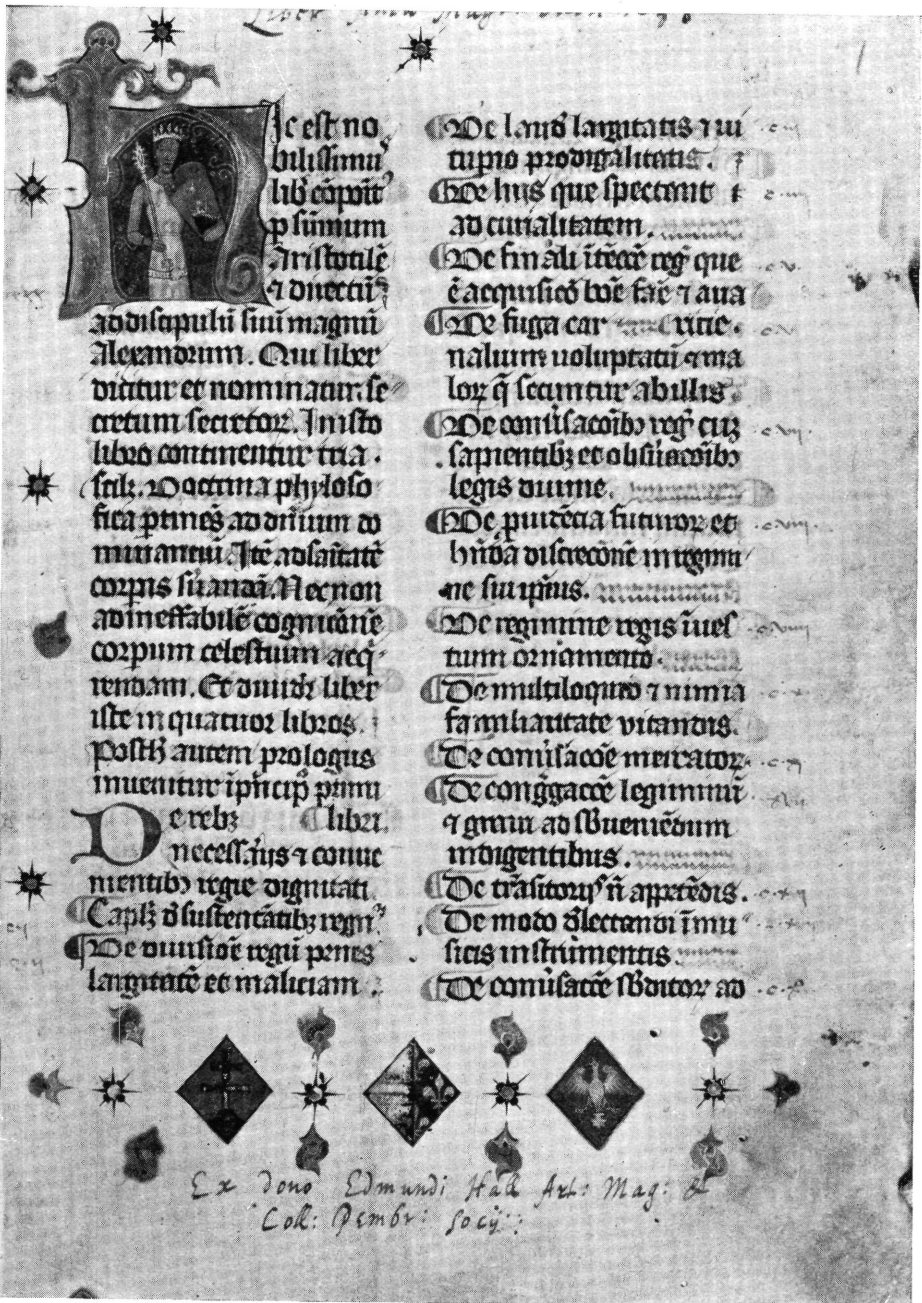 Hic est no
bilissimꝰ
lib̄ cōpoit'
p sūmum
Aristotilē
⁊ directꝰ
ad discipulū suū magnū
Alexandrum. Qui liber
dicitur et nominatur se
cretum secretoꝝ. In isto
libro continentur tria.
scilꝫ. Doctrina phyloso
fica ptinēs ad dn̄ium do
minantiū. Itē ad sāitatē
corpis f̄uandā. Necnon
ad ineffabilē cognicōnē
corpum celestium acq̄
rendam. Et diuidit̄ liber
iste in quatuor libros.
Posth̄ autem prologus
inuenitur ī pncip̄ primi
De rebꝫ libri.
necessariis ⁊ conue
nientibꝫ regie dignitati
Caplꝫ d̄ sustentātibꝫ regnū
De diuisiōe regū penes
largitatē et maliciam
De laud̄ largitatis ⁊ ui
tupio prodigalitatis.
De hiis que spectant
ad curialitatem.
De finali ītēcōe reḡ que
ē acquisicō bōe fāe ⁊ aua
De fuga car
nalium uoluptatū ⁊ ma
loꝝ q̄ secuntur ab illis
De comūsacōibꝫ reḡ cuꝫ
sapientibꝫ et obs̄uacōibꝫ
legis diuine.
De puidēcia futuroꝝ et
hn̄da discrecōne in regimi
ne sui ipius.
De regimine regis ī ues
tium ornamento.
De multiloquio ⁊ nimia
familiaritate vitandis.
De comūsacōe mercatoꝝ
De cong̃gacōe leguminū
⁊ granoꝝ ad s̄bueniēdum
indigentibus.
De trāsitoriis n̄ appetēdis.
De modo d̄lectandi ī mu
sicis instrumentis.
De comūsacōe s̄bditoꝝ ad
Ex dono Edmundi Hall Art: Mag: &
Coll: Pembr: Socij: